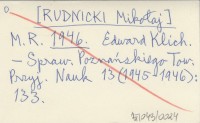 [RUDNICKI Mikołaj]
M.R. 1946. Edward Klich.
– Spraw. Poznańskiego Tow.
Przyj. Nauk 13 (1945-1946):
133.